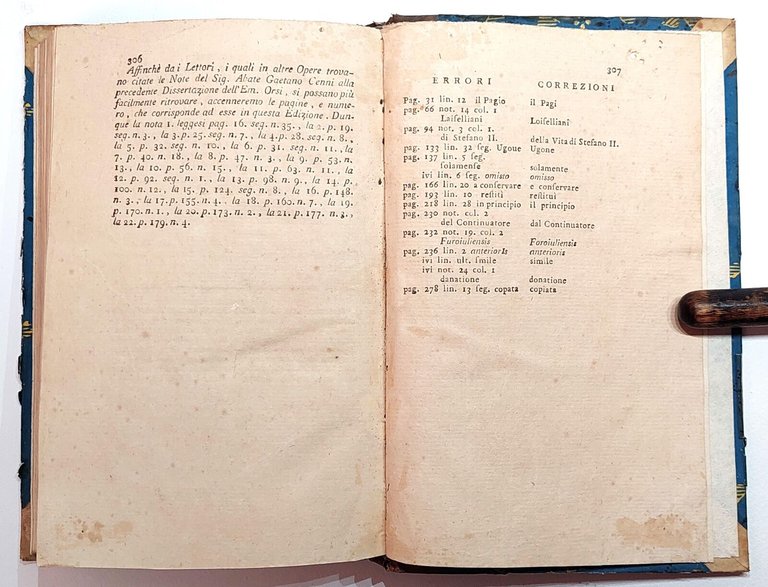 306
Affinchè da i Lettori, i quali in altre Opere trova-
no citate le Note del Sig. Abate Gaetano Cenni alla
precedente Dissertazione dell'Em. Orsi, si possano più
facilmente ritrovare, accenneremo le pagine, e nume-
ro, che corrisponde ad esse in questa Edizione. Dun-
que la nota 1. leggesi pag. 16. seg. n. 35., la 2. p. 19.
seg. n. 3., la 3. p. 25. seg. n. 7., la 4. p. 28. seg. n. 8.,
la 5. p. 32. seg. n. 10., la 6. p. 31. seg. n. 11., la
7. p. 40. n. 18., la 8. p. 47. n. 3., la 9. p. 53. n.
13., la 10. p. 56. n. 15., la 11. p. 63. n. 11., la
12. p. 92. seg. n. 1., la 13. p. 98. n. 9., la 14. p.
100. n. 12., la 15. p. 124. seg. n. 8., la 16. p. 148.
n. 3., la 17. p. 155. n. 4., la 18. p. 160. n. 7., la 19.
p. 170. n. 1., la 20. p. 173. n. 2., la 21. p. 177. n. 3.,
la 22. p. 179. n. 4.
307
ERRORI CORREZIONI
Pag. 31 lin. 12 il Pagio il Pagi
pag. 66 not. 14 col. 1
Laifelliani Loifelliani
pag. 94 not. 3 col. 1.
di Stefano II. della Vita di Stefano II.
pag. 133 lin. 32 seg. Ugoue Ugone
pag. 137 lin. 5 seg.
solamense solamente
ivi lin. 6 seg. omisto omisso
pag. 166 lin. 20 a conservare e conservare
pag. 193 lin. 10 restiti restitui
pag. 218 lin. 28 in principio il principio
pag. 230 not. col. 2
del Continuatore dal Continuatore
pag. 232 not. 19. col. 2
Furoiuliensis Foroiuliensis
pag. 236 lin. 2 anterioris anterioris
ivi lin. ult. smile simile
ivi not. 24 col. 1
danatione donatione
pag. 278 lin. 13 seg. copata copiata